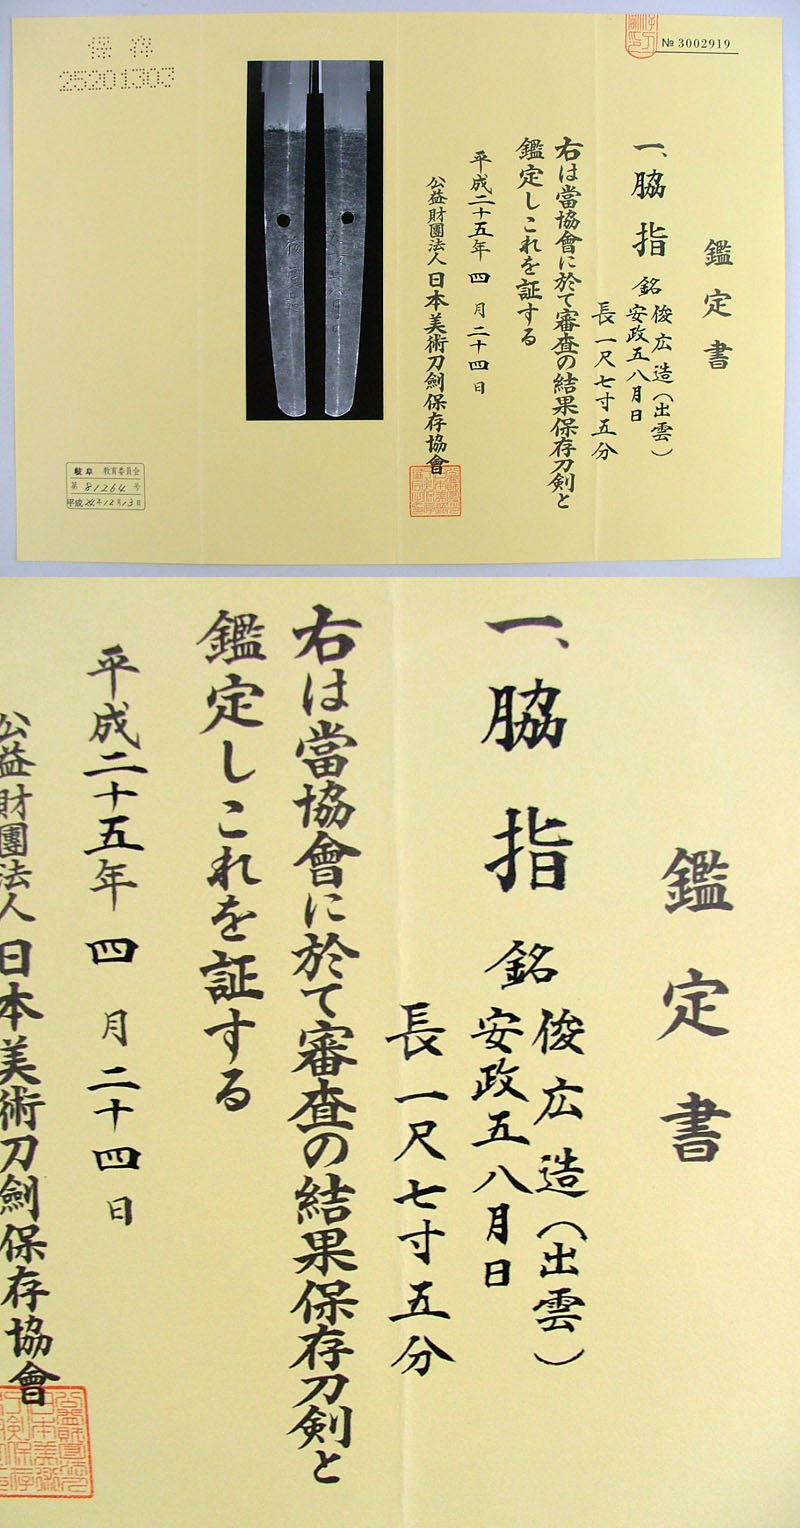 № 3002919
鑑定書
一、脇指 銘 俊広造(出雲)
安政五八月日
長一尺七寸五分
右は當協會に於て審査の結果保存刀剣と
鑑定しこれを証する
平成二十五年四月二十四日
公益財團法人日本美術刀劍保存協會
保存
25201303
岐阜 教育委員会
第81264号
平成24年12月13日
鑑定書
一、脇指 銘 俊広造(出雲)
安政五八月日
長一尺七寸五分
右は當協會に於て審査の結果保存刀剣と
鑑定しこれを証する
平成二十五年四月二十四日
公益財團法人日本美術刀劍保存協會